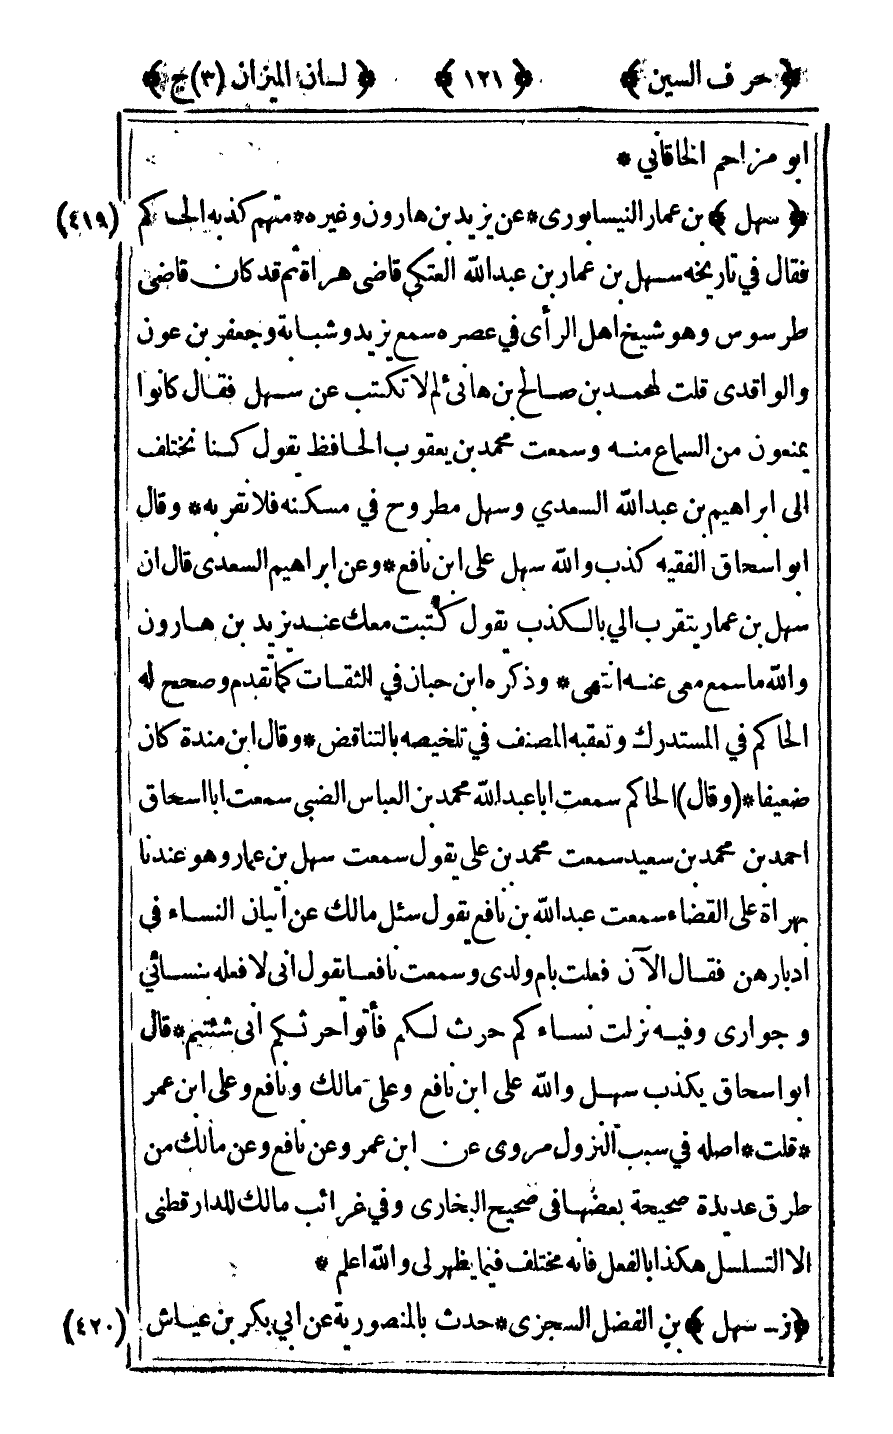 ﴿ حرف السين ﴾ ﴿ ١٢١ ﴾ ﴿ لسان الميزان (٣) ج ﴾
ابو مزاحم الخاقاني *
﴿ سهل ﴾ بن عمار النيسابورى * عن يزيد بن هارون وغيره * متهم كذبه الحاكم (٤١٩)
فقال في تاريخه سهل بن عمار بن عبدالله العتكي قاضى هراة ثم قد كان قاضى
طرسوس وهو شيخ اهل الرأى في عصره سمع يزيد وشبابة وجعفر بن عون
والواقدى قلت لمحمد بن صالح بن هانئ لم لا تكتب عن سهل فقال كانوا
يمنعون من السماع منه وسمعت محمد بن يعقوب الحافظ يقول كنا نختلف
الى ابراهيم بن عبدالله السعدي وسهل مطروح في مسكنه فلا نقربه * وقال
ابواسحاق الفقيه كذب والله سهل على ابن نافع * وعن ابراهيم السعدى قال ان
سهل بن عمار يتقرب الي بالكذب يقول كتبت معك عند يزيد بن هارون
والله ما سمع معى عنه انتهى * وذكره ابن حبان في الثقات كما تقدم وصحح له
الحاكم في المستدرك وتعقبه المصنف في تلخيصه بالتناقض * وقال ابن مندة كان
ضعيفا * (وقال) الحاكم سمعت اباعبدالله محمد بن العباس الضبى سمعت ابااسحاق
احمد بن محمد بن سعيد سمعت محمد بن على يقول سمعت سهل بن عمار وهو عندنا
بهراة على القضاء سمعت عبدالله بن نافع يقول سئل مالك عن اتيان النساء في
ادبارهن فقال الآن فعلت بام ولدى وسمعت نافعا يقول انى لافعله بنسائي
وجوارى وفيه نزلت نساءكم حرث لكم فأتوا حرثكم انى شئتم * قال
ابواسحاق يكذب سهل والله على ابن نافع وعلى مالك ونافع وعلى ابن عمر
* قلت * اصله في سبب النزول مروى عن ابن عمر وعن نافع وعن مالك من
طرق عديدة صحيحة بعضها فى صحيح البخارى وفي غرائب مالك للدارقطنى
الا التسلسل هكذا بالفعل فانه مختلف فيما يظهر لى والله اعلم *
﴿ ز ـ سهل ﴾ بن الفضل السجزى * حدث بالمنصورية عن ابي بكر بن عياش (٤٢٠)